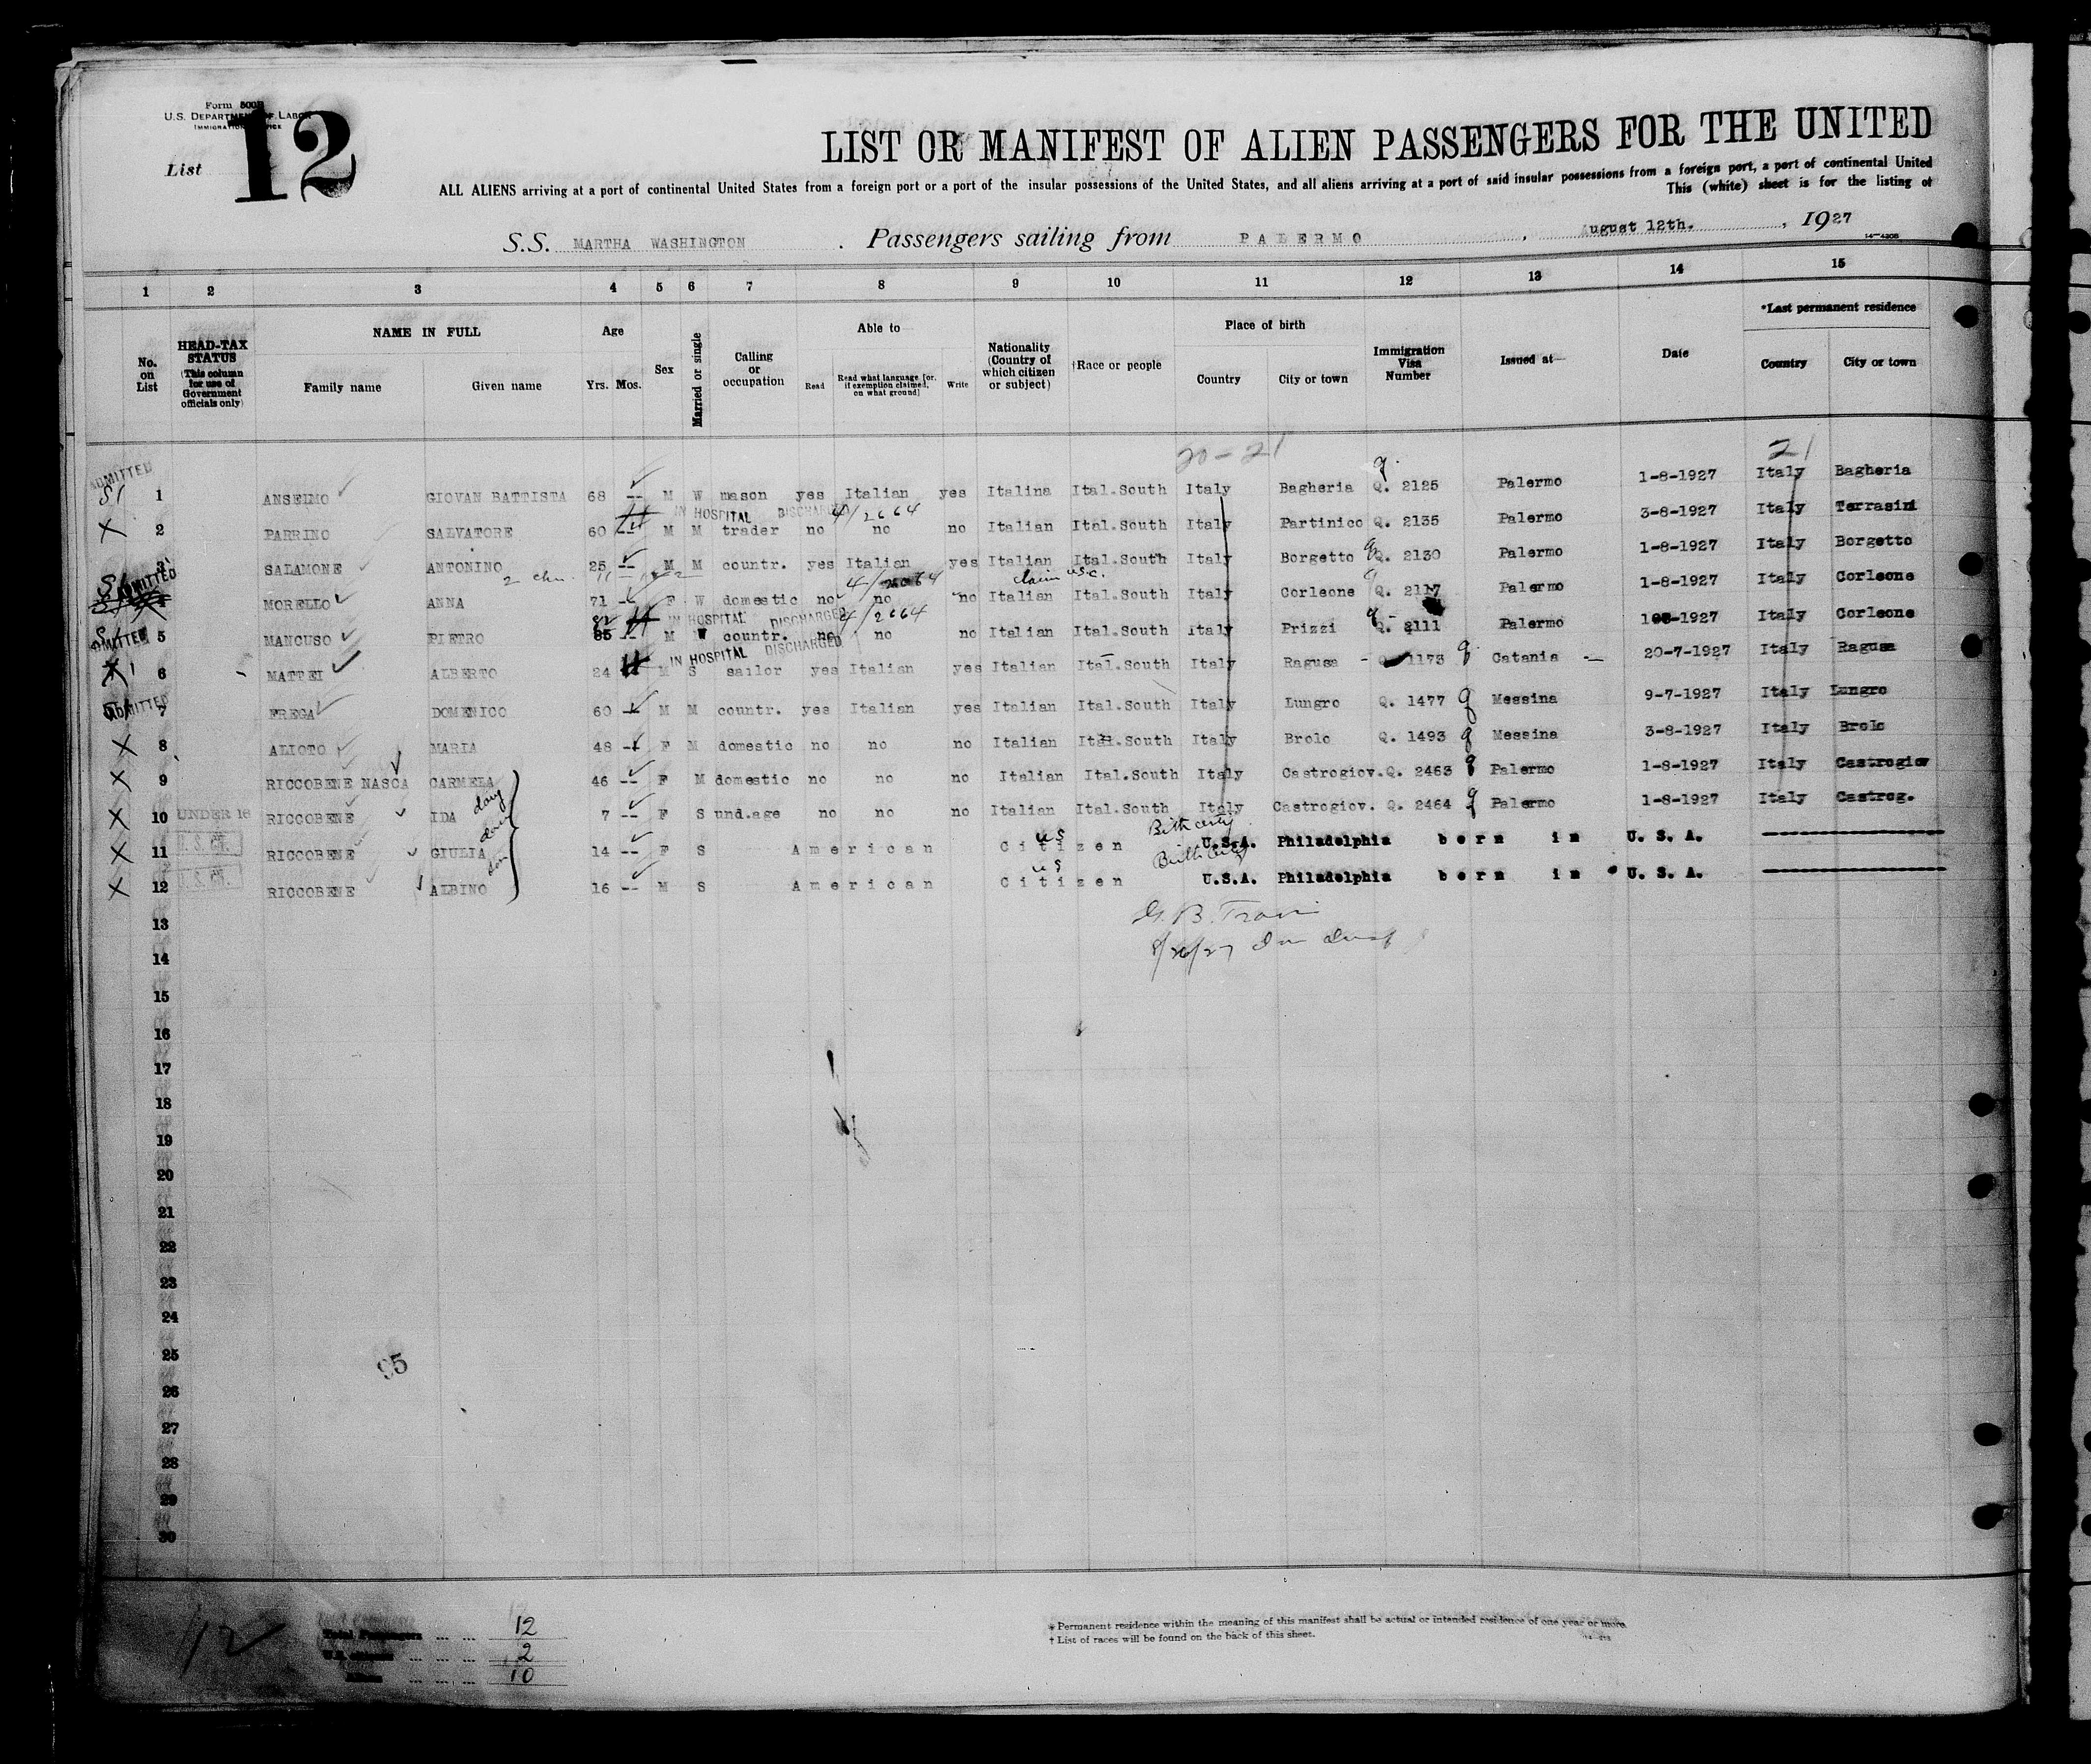 Form 500B
U.S. DEPARTMENT OF LABOR
IMMIGRATION SERVICE
List 12
LIST OR MANIFEST OF ALIEN PASSENGERS FOR THE UNITED
ALL ALIENS arriving at a port of continental United States from a foreign port or a port of the insular possessions of the United States, and all aliens arriving at a port of said insular possessions from a foreign port, a port of continental United
This (white) sheet is for the listing of
S.S. MARTHA WASHINGTON . Passengers sailing from PALERMO , August 12th. , 1927
1 2 3 4 5 6 7 8 9 10 11 12 13 14 15
No. on List
HEAD-TAX STATUS (This column for use of Government officials only)
NAME IN FULL
Family name Given name
Age
Yrs. Mos.
Sex
Married or single
Calling or occupation
Able to
Read Read what language [or, if exemption claimed, on what ground] Write
Nationality (Country of which citizen or subject)
†Race or people
Place of birth
Country City or town
Immigration Visa Number
Issued at—
Date
*Last permanent residence
Country City or town
20-21 21
ADMITTED SI 1 ANSELMO GIOVAN BATTISTA 68 -- M W mason yes Italian yes Italina Ital.South Italy Bagheria Q. 2125 Palermo 1-8-1927 Italy Bagheria
IN HOSPITAL DISCHARGED 4/2664
X 2 PARRINO SALVATORE 60 -- M M trader no no no Italian Ital.South Italy Partinico Q. 2135 Palermo 3-8-1927 Italy Terrasini
3 SALAMONE ANTONINO 25 -- M M countr. yes Italian yes Italian Ital.South Italy Borgetto Q. 2130 Palermo 1-8-1927 Italy Borgetto
claim U.S.C.
ADMITTED MORELLO ANNA 71 -- F W domestic no no no Italian Ital.South Italy Corleone Q. 2117 Palermo 1-8-1927 Italy Corleone
IN HOSPITAL DISCHARGED 4/2664
ADMITTED 5 MANCUSO PIETRO 65 -- M W countr. no no no Italian Ital.South Italy Prizzi Q. 2111 Palermo 1-8-1927 Italy Corleone
IN HOSPITAL DISCHARGED
6 MATTEI ALBERTO 24 M S sailor yes Italian yes Italian Ital.South Italy Ragusa - Q 1173 Catania 20-7-1927 Italy Ragusa
ADMITTED 7 FREGA DOMENICO 60 -- M M countr. yes Italian yes Italian Ital.South Italy Lungro Q. 1477 Messina 9-7-1927 Italy Lungro
X 8 ALIOTO MARIA 48 -- F M domestic no no no Italian Ital.South Italy Brolo Q. 1493 Messina 3-8-1927 Italy Brolo
X 9 RICCOBENE NASCA CARMELA 46 -- F M domestic no no no Italian Ital.South Italy Castrogiov. Q. 2463 Palermo 1-8-1927 Italy Castrogiov
X 10 UNDER 16 RICCOBENE IDA daug 7 -- F S und.age no no no Italian Ital.South Italy Castrogiov. Q. 2464 Palermo 1-8-1927 Italy Castrog.
US Birth Certif
X 11 U.S. CIT. RICCOBENE GIULIA 14 -- F S American Citizen U.S.A. Philadelphia born in U. S. A.
US Birth Certif
X 12 U.S. CIT. RICCOBENE ALBINO son 16 -- M S American Citizen U.S.A. Philadelphia born in U. S. A.
13
14
8/26/27
15
16
17
18
19
20
21
22
23
24
25
26
27
28
29
30
95
12
Total Passengers ... ... 12
U.S. citizens ... ... ... 2
Aliens ... ... ... 10
* Permanent residence within the meaning of this manifest shall be actual or intended residence of one year or more.
† List of races will be found on the back of this sheet.